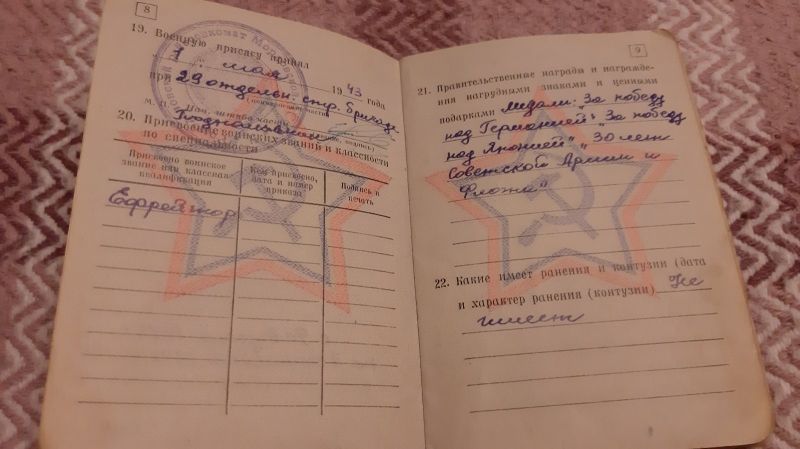 8
19. Военную присягу принял
1 мая 1943 года
при 29 отдельн. стр. бригаде
М. П.
Подполковник
20. Присвоение воинских званий и классности
по специальности
Присвоено воинское
звание или классная
квалификация
Кем присвоено,
дата и номер
приказа
Подпись и
печать
Ефрейтор
9
21. Правительственные награды и награжде-
ния нагрудными знаками и ценными
подарками Медали: За победу
над Германией" За победу
над Японией", 30 лет
Советской Армии и
Флота"
22. Какие имеет ранения и контузии (дата
и характер ранения (контузии) Не
имеет